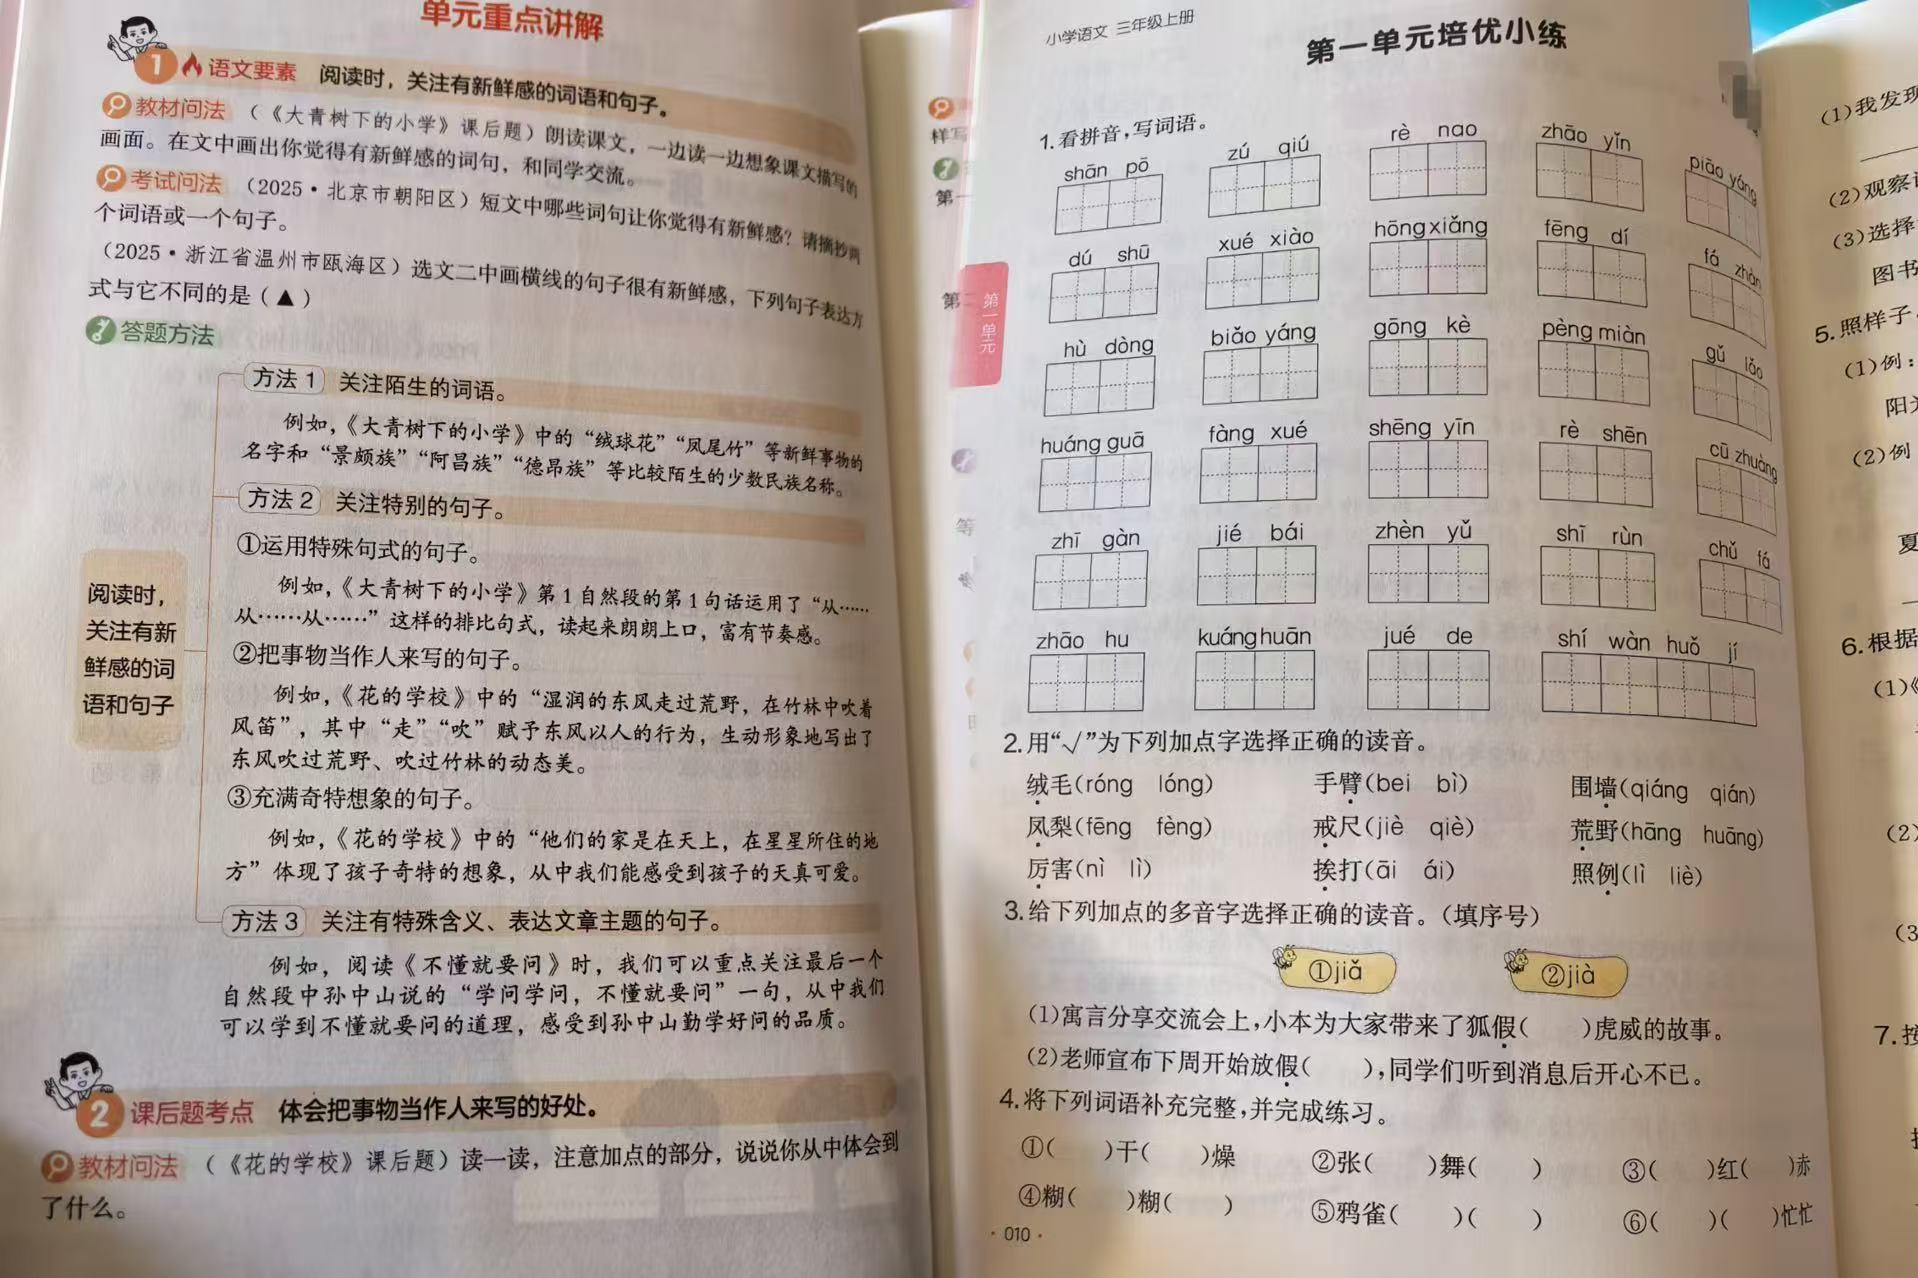 单元重点讲解
1 语文要素 阅读时，关注有新鲜感的词语和句子。
教材问法 （《大青树下的小学》课后题）朗读课文，一边读一边想象课文描写的
画面。在文中画出你觉得有新鲜感的词句，和同学交流。
考试问法 （2025·北京市朝阳区）短文中哪些词句让你觉得有新鲜感？请摘抄两
个词语或一个句子。
（2025·浙江省温州市瓯海区）选文二中画横线的句子很有新鲜感，下列句子表达方
式与它不同的是（▲）
答题方法
阅读时，
关注有新
鲜感的词
语和句子
方法1 关注陌生的词语。
例如，《大青树下的小学》中的“绒球花”“凤尾竹”等新鲜事物的
名字和“景颇族”“阿昌族”“德昂族”等比较陌生的少数民族名称。
方法2 关注特别的句子。
①运用特殊句式的句子。
例如，《大青树下的小学》第1自然段的第1句话运用了“从……
从……从……”这样的排比句式，读起来朗朗上口，富有节奏感。
②把事物当作人来写的句子。
例如，《花的学校》中的“湿润的东风走过荒野，在竹林中吹着
风笛”，其中“走”“吹”赋予东风以人的行为，生动形象地写出了
东风吹过荒野、吹过竹林的动态美。
③充满奇特想象的句子。
例如，《花的学校》中的“他们的家是在天上，在星星所住的地
方”体现了孩子奇特的想象，从中我们能感受到孩子的天真可爱。
方法3 关注有特殊含义、表达文章主题的句子。
例如，阅读《不懂就要问》时，我们可以重点关注最后一个
自然段中孙中山说的“学问学问，不懂就要问”一句，从中我们
可以学到不懂就要问的道理，感受到孙中山勤学好问的品质。
2 课后题考点 体会把事物当作人来写的好处。
教材问法 （《花的学校》课后题）读一读，注意加点的部分，说说你从中体会到
了什么。
样写
第一
第二
等
第一单元
小学语文 三年级上册
第一单元培优小练
1.看拼音，写词语。
shān pō zú qiú rè nao zhāo yǐn piāo yáng
dú shū xué xiào hōng xiǎng fēng dí fá zhàn
hù dòng biǎo yáng gōng kè pèng miàn gǔ lǎo
huáng guā fàng xué shēng yīn rè shēn cū zhuàng
zhī gàn jié bái zhèn yǔ shī rùn chǔ fá
zhāo hu kuáng huān jué de shí wàn huǒ jí
2.用“√”为下列加点字选择正确的读音。
绒毛(róng lóng) 手臂(bei bì) 围墙(qiáng qián)
凤梨(fēng fèng) 戒尺(jiè qiè) 荒野(hāng huāng)
厉害(nì lì) 挨打(āi ái) 照例(lì liè)
3.给下列加点的多音字选择正确的读音。(填序号)
①jiǎ ②jià
(1)寓言分享交流会上,小本为大家带来了狐假( )虎威的故事。
(2)老师宣布下周开始放假( ),同学们听到消息后开心不已。
4.将下列词语补充完整,并完成练习。
①( )干( )燥 ②张( )舞( ) ③( )红( )赤
④糊( )糊( ) ⑤鸦雀( )( ) ⑥( )( )忙忙
·010·
(1)我发现
(2)观察
(3)选择
图书
5.照样子
(1)例：
阳光
(2)例
夏
6.根据
(1)《
(2)
(3
7.按